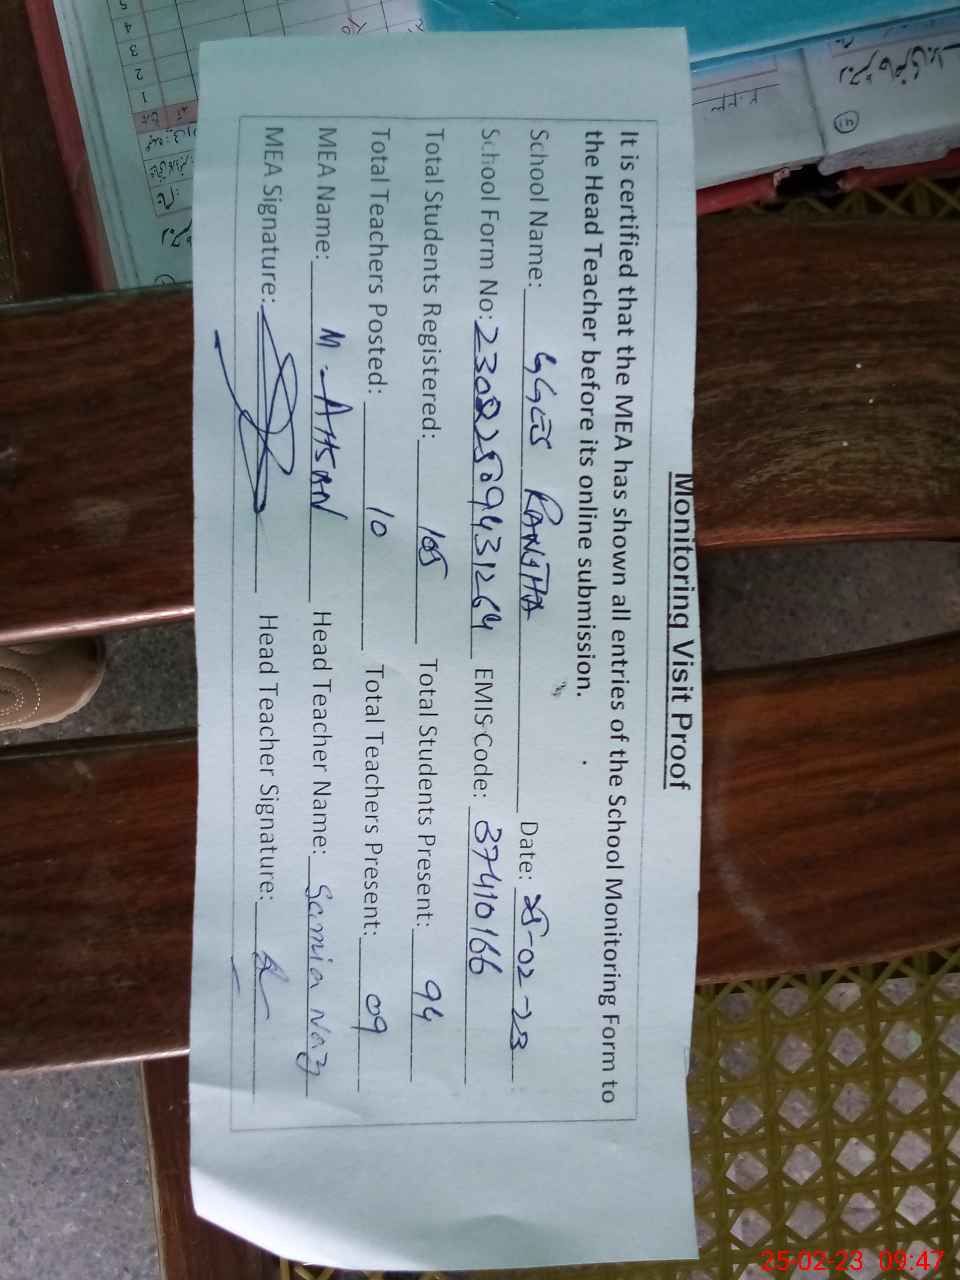 Monitoring Visit Proof
It is certified that the MEA has shown all entries of the School Monitoring Form to
the Head Teacher before its online submission.
School Name: GGES RANJHA Date: 25-02-23
School Form No: EMIS Code: 37410166
Total Students Registered: 105 Total Students Present: 94
Total Teachers Posted: 10 Total Teachers Present: 09
MEA Name: M. AHSAN Head Teacher Name: Samia Naz
MEA Signature: Head Teacher Signature:
1
2
3
4
5
25-02-23 09:47